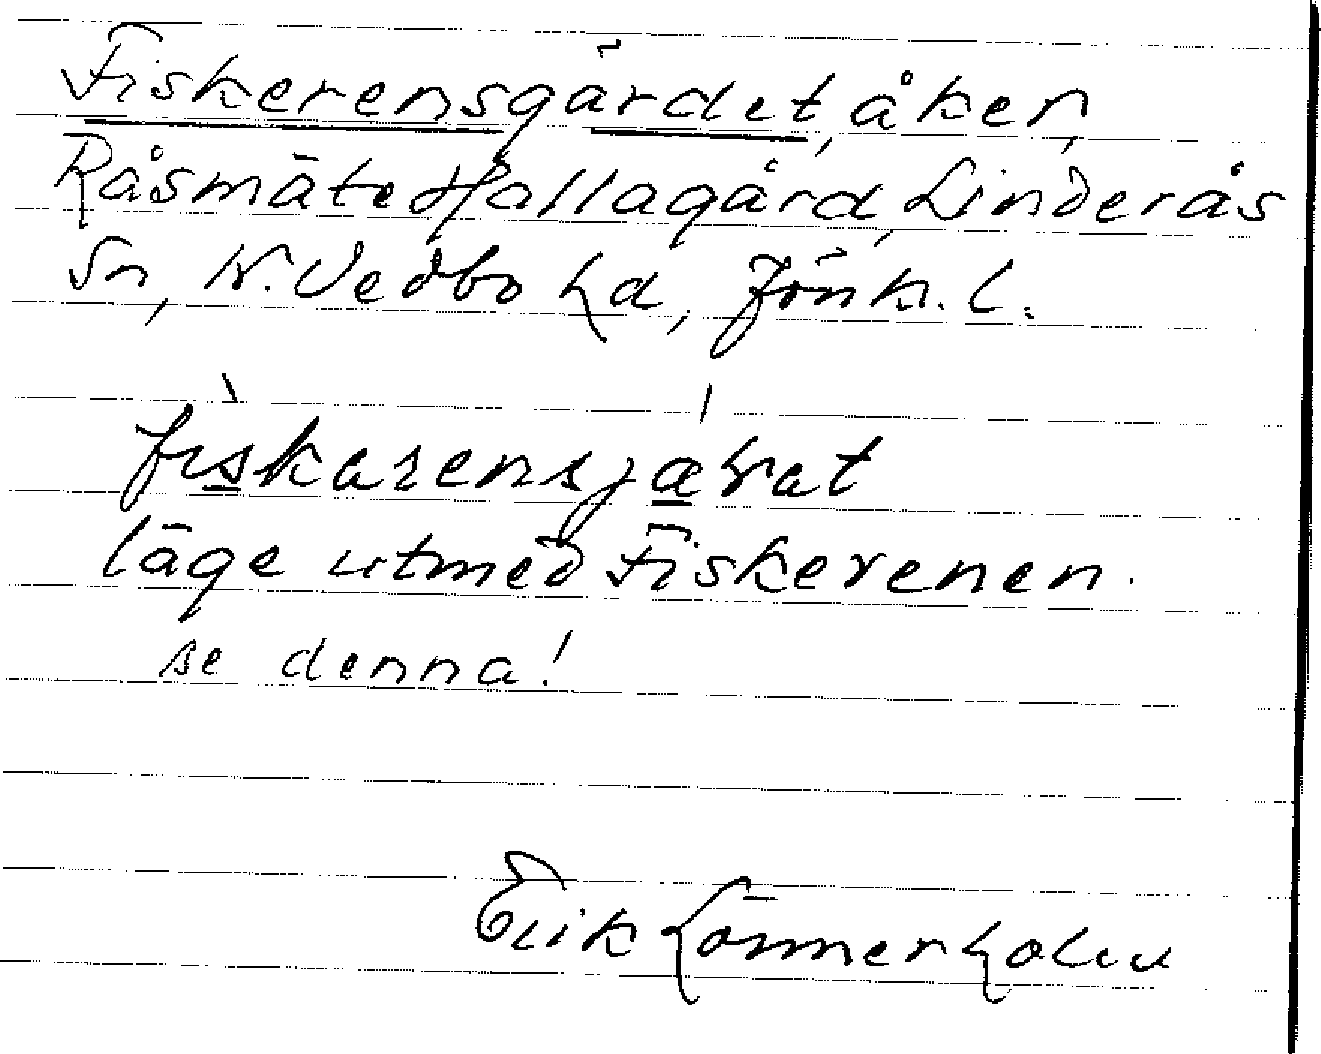 Fiskerensgärdet, åker,
Råsmäte Hallagård, Linderås
Sn, N. Vedbo hd, Jönk. l.
fiskarensjærat
läge utmed Fiskerenen.
se denna!
Erik Lönnerholm